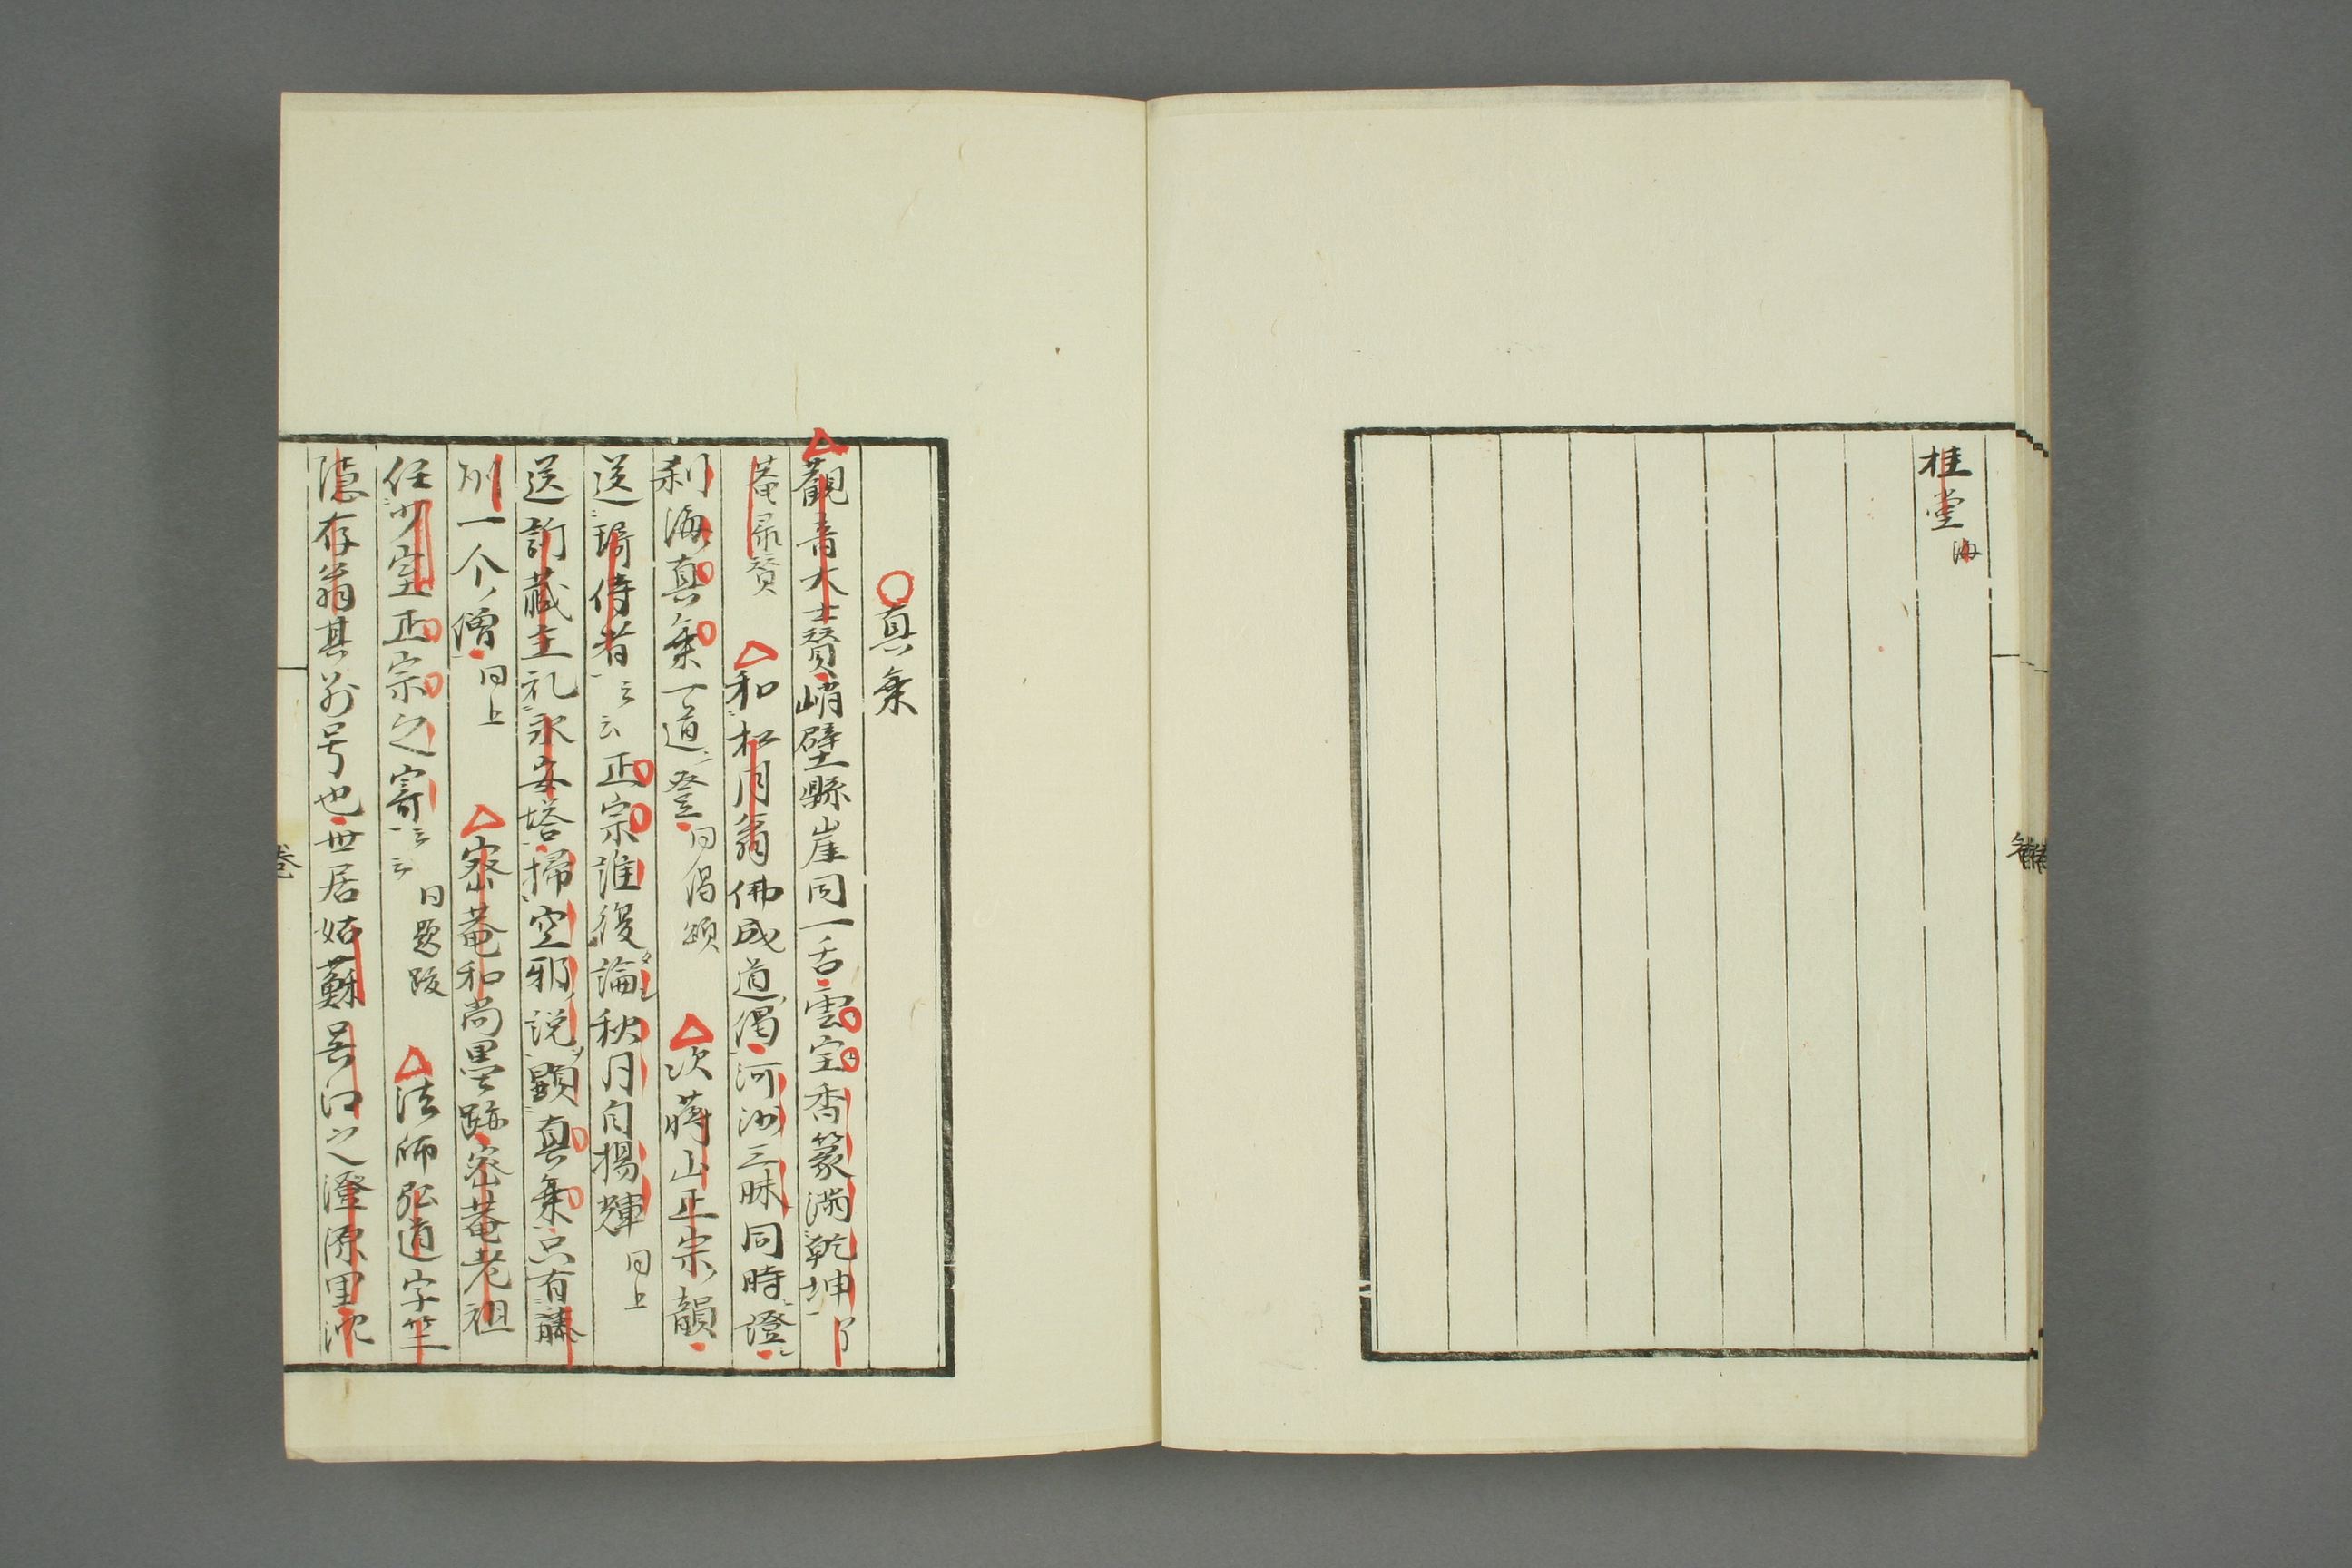 桂堂 海
真乗
觀音大士賛峭壁縣崖同一舌雲宝香篆满乾坤
菴录賛 和松月翁佛成道偈河沙三昧同時證
刹海真乗一道登 同偈頌 次蒋山正宗韻
送璚侍者云云正宗誰復論秋月自揚輝 同上
送訂蔵主礼永安塔掃空邪說顕真乗只有藤
州一个僧 同上 密菴和尚墨跡密菴老祖
任少室正宗之寄云云 同題跋 法師弘道字竺
隠存翁其別号也世居姑蘇吴江之澄源里沈
巻